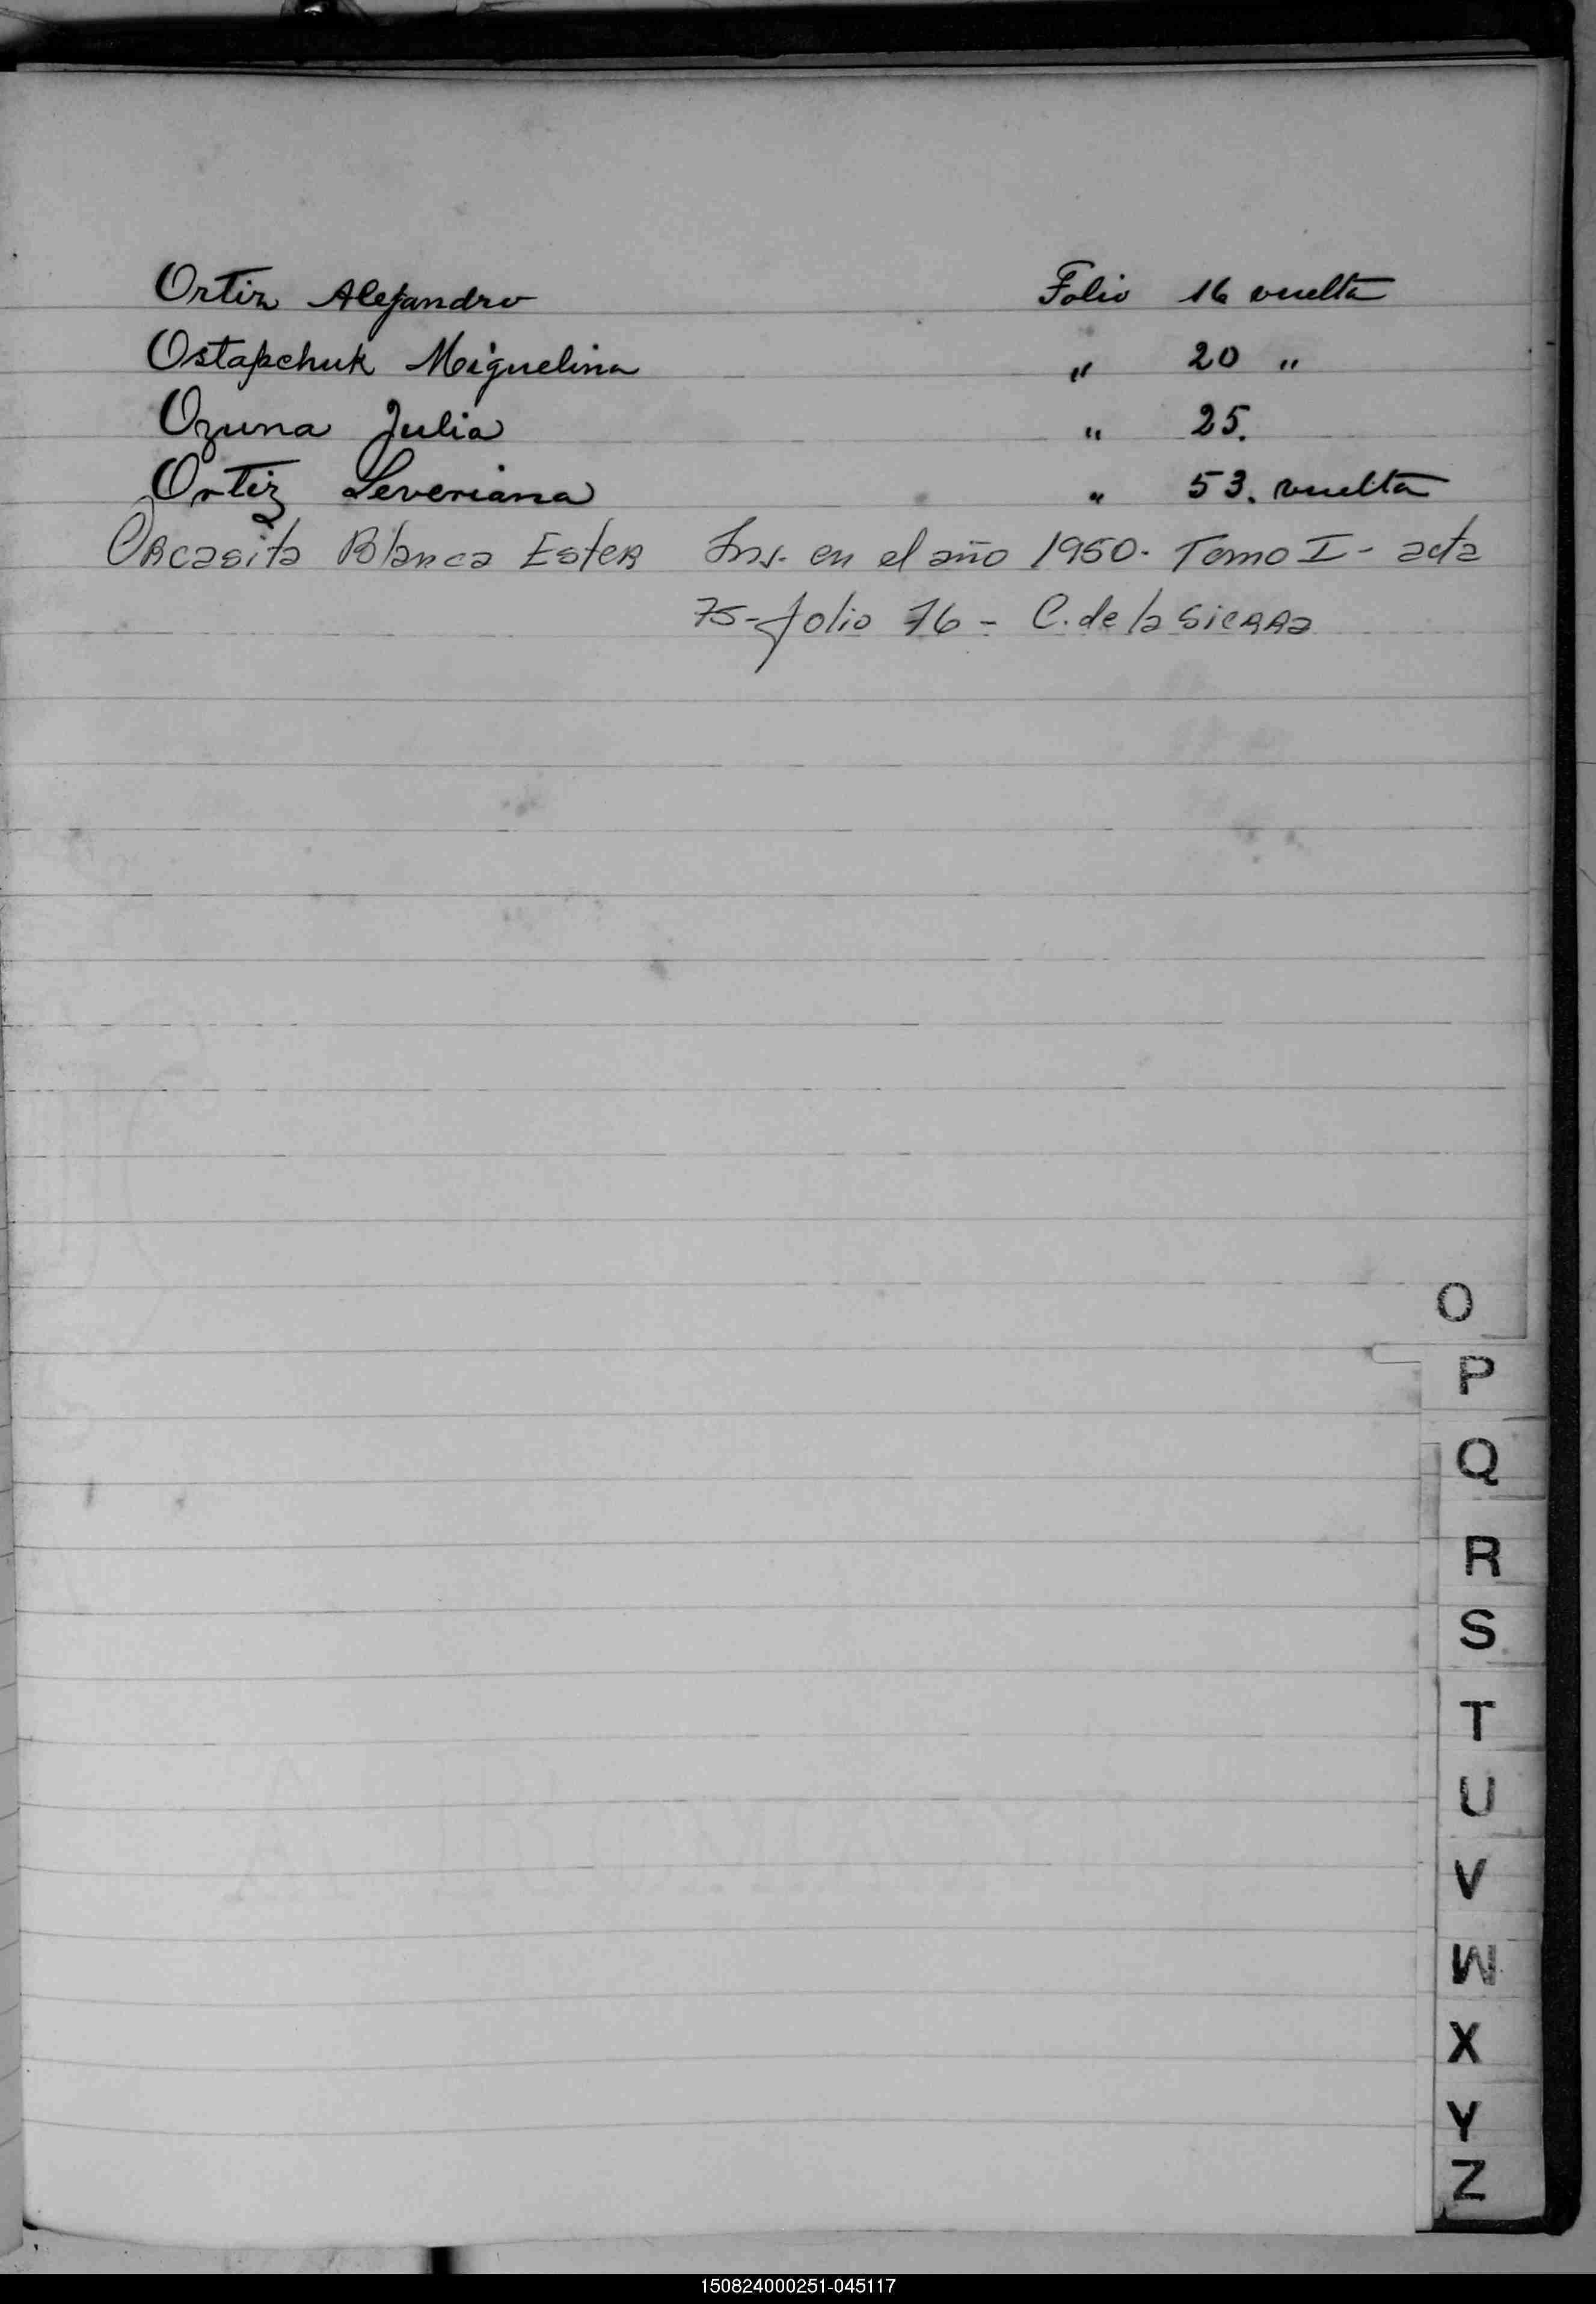 Ortiz Alejandro Folio 16 vuelta
Ostapchuk Miguelina " 20 "
Ozuna Julia " 25.
Ortiz Severiana " 53. vuelta
Orcasita Blanca Ester Ins. en el año 1950. Tomo I - acta
75 - folio 76 - C. de la Sierra
O
P
Q
R
S
T
U
V
W
X
Y
Z
150824000251-045117